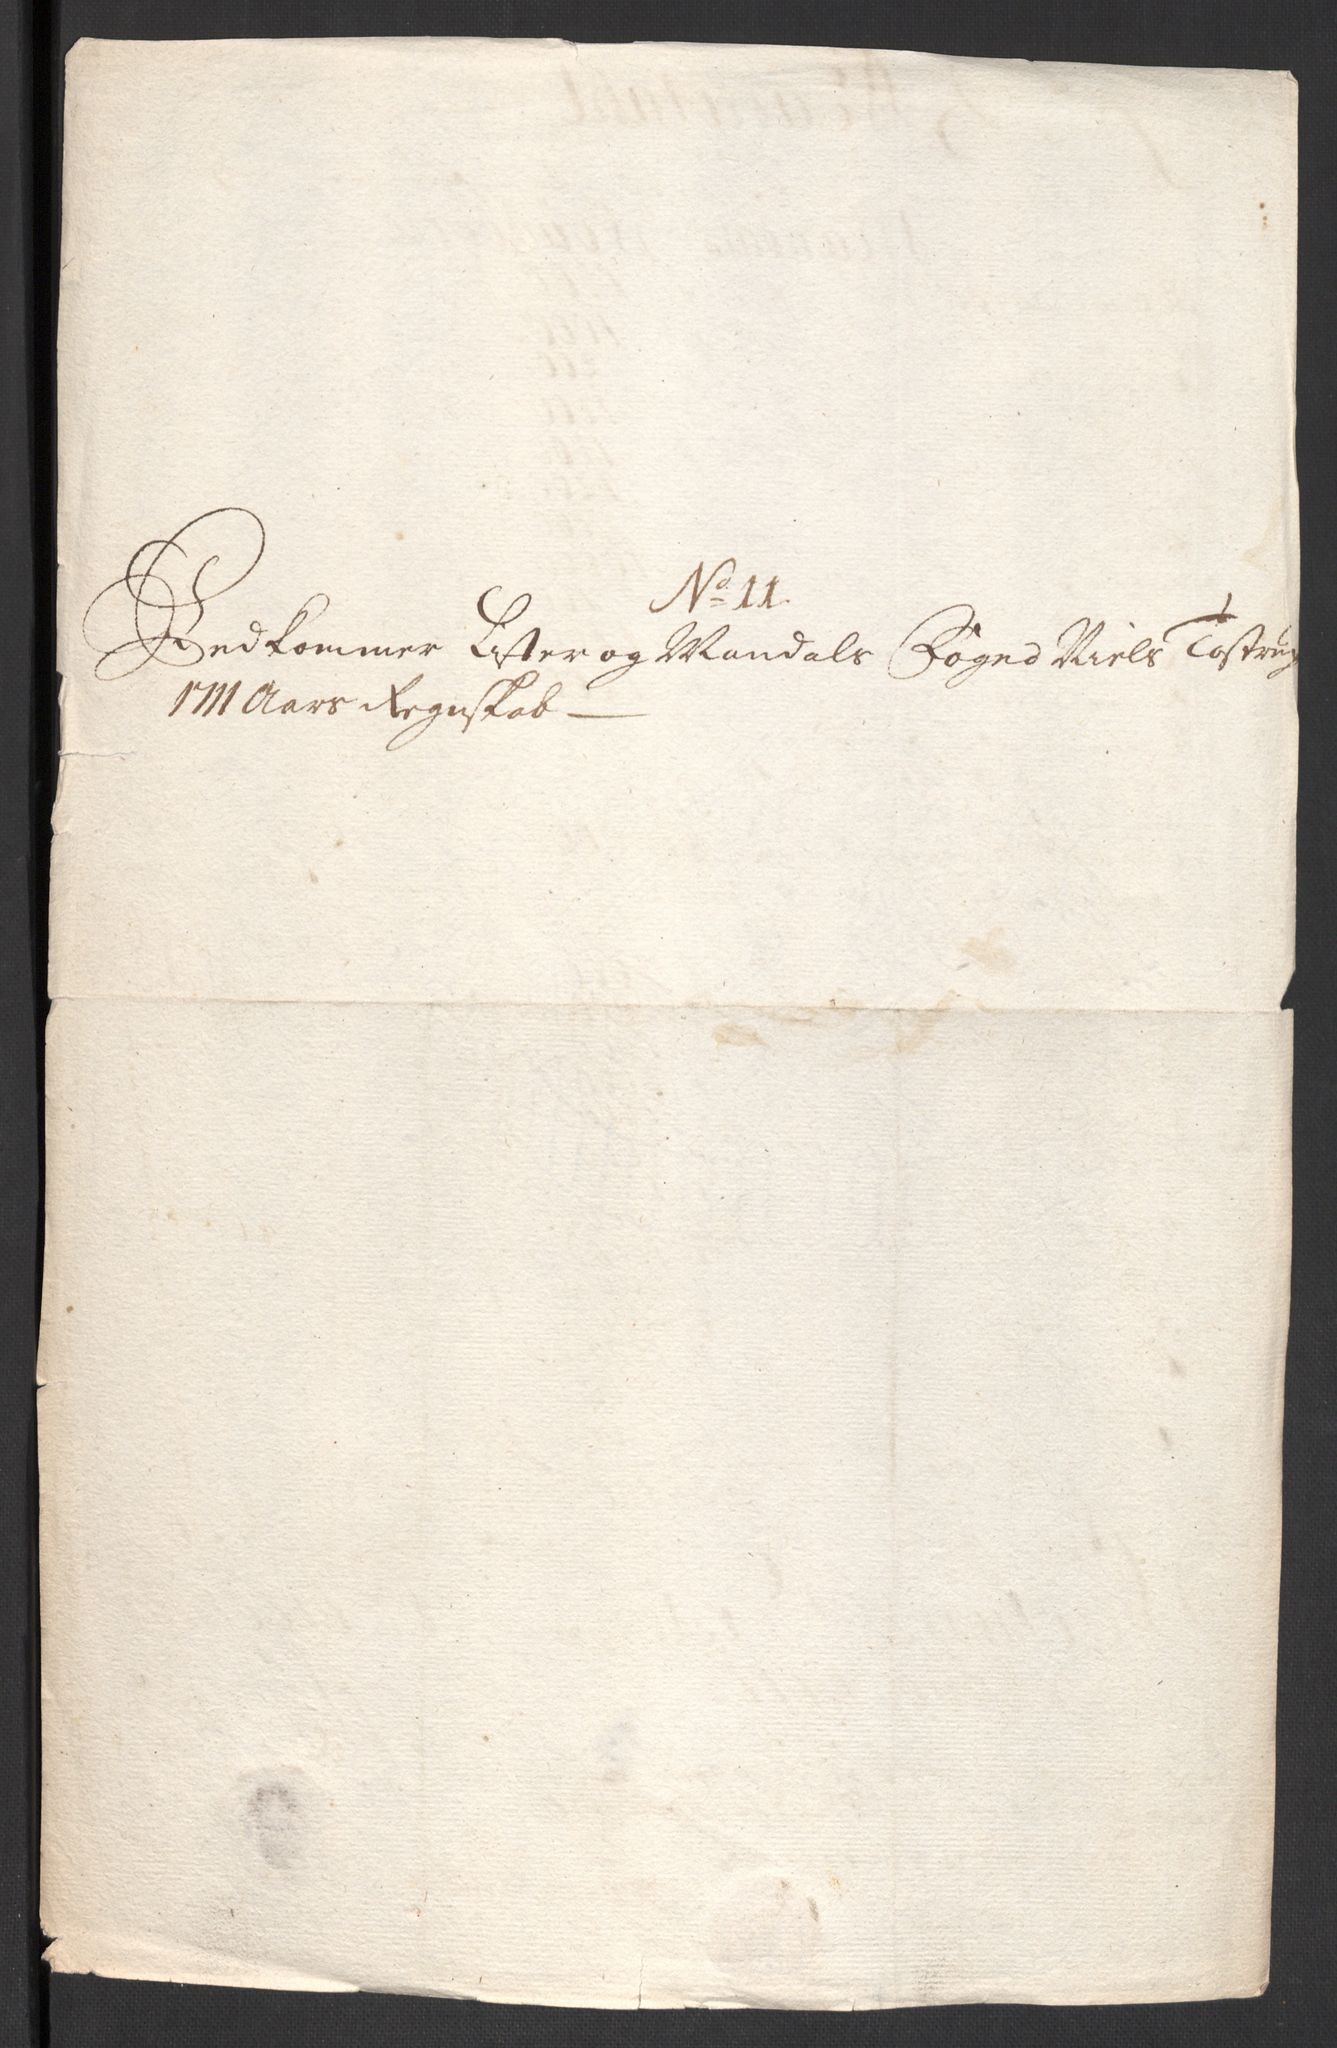 No 11.
Vedkommer Lister og Mandals Foged Niels Tostrup
1711 Aars Regnskab —